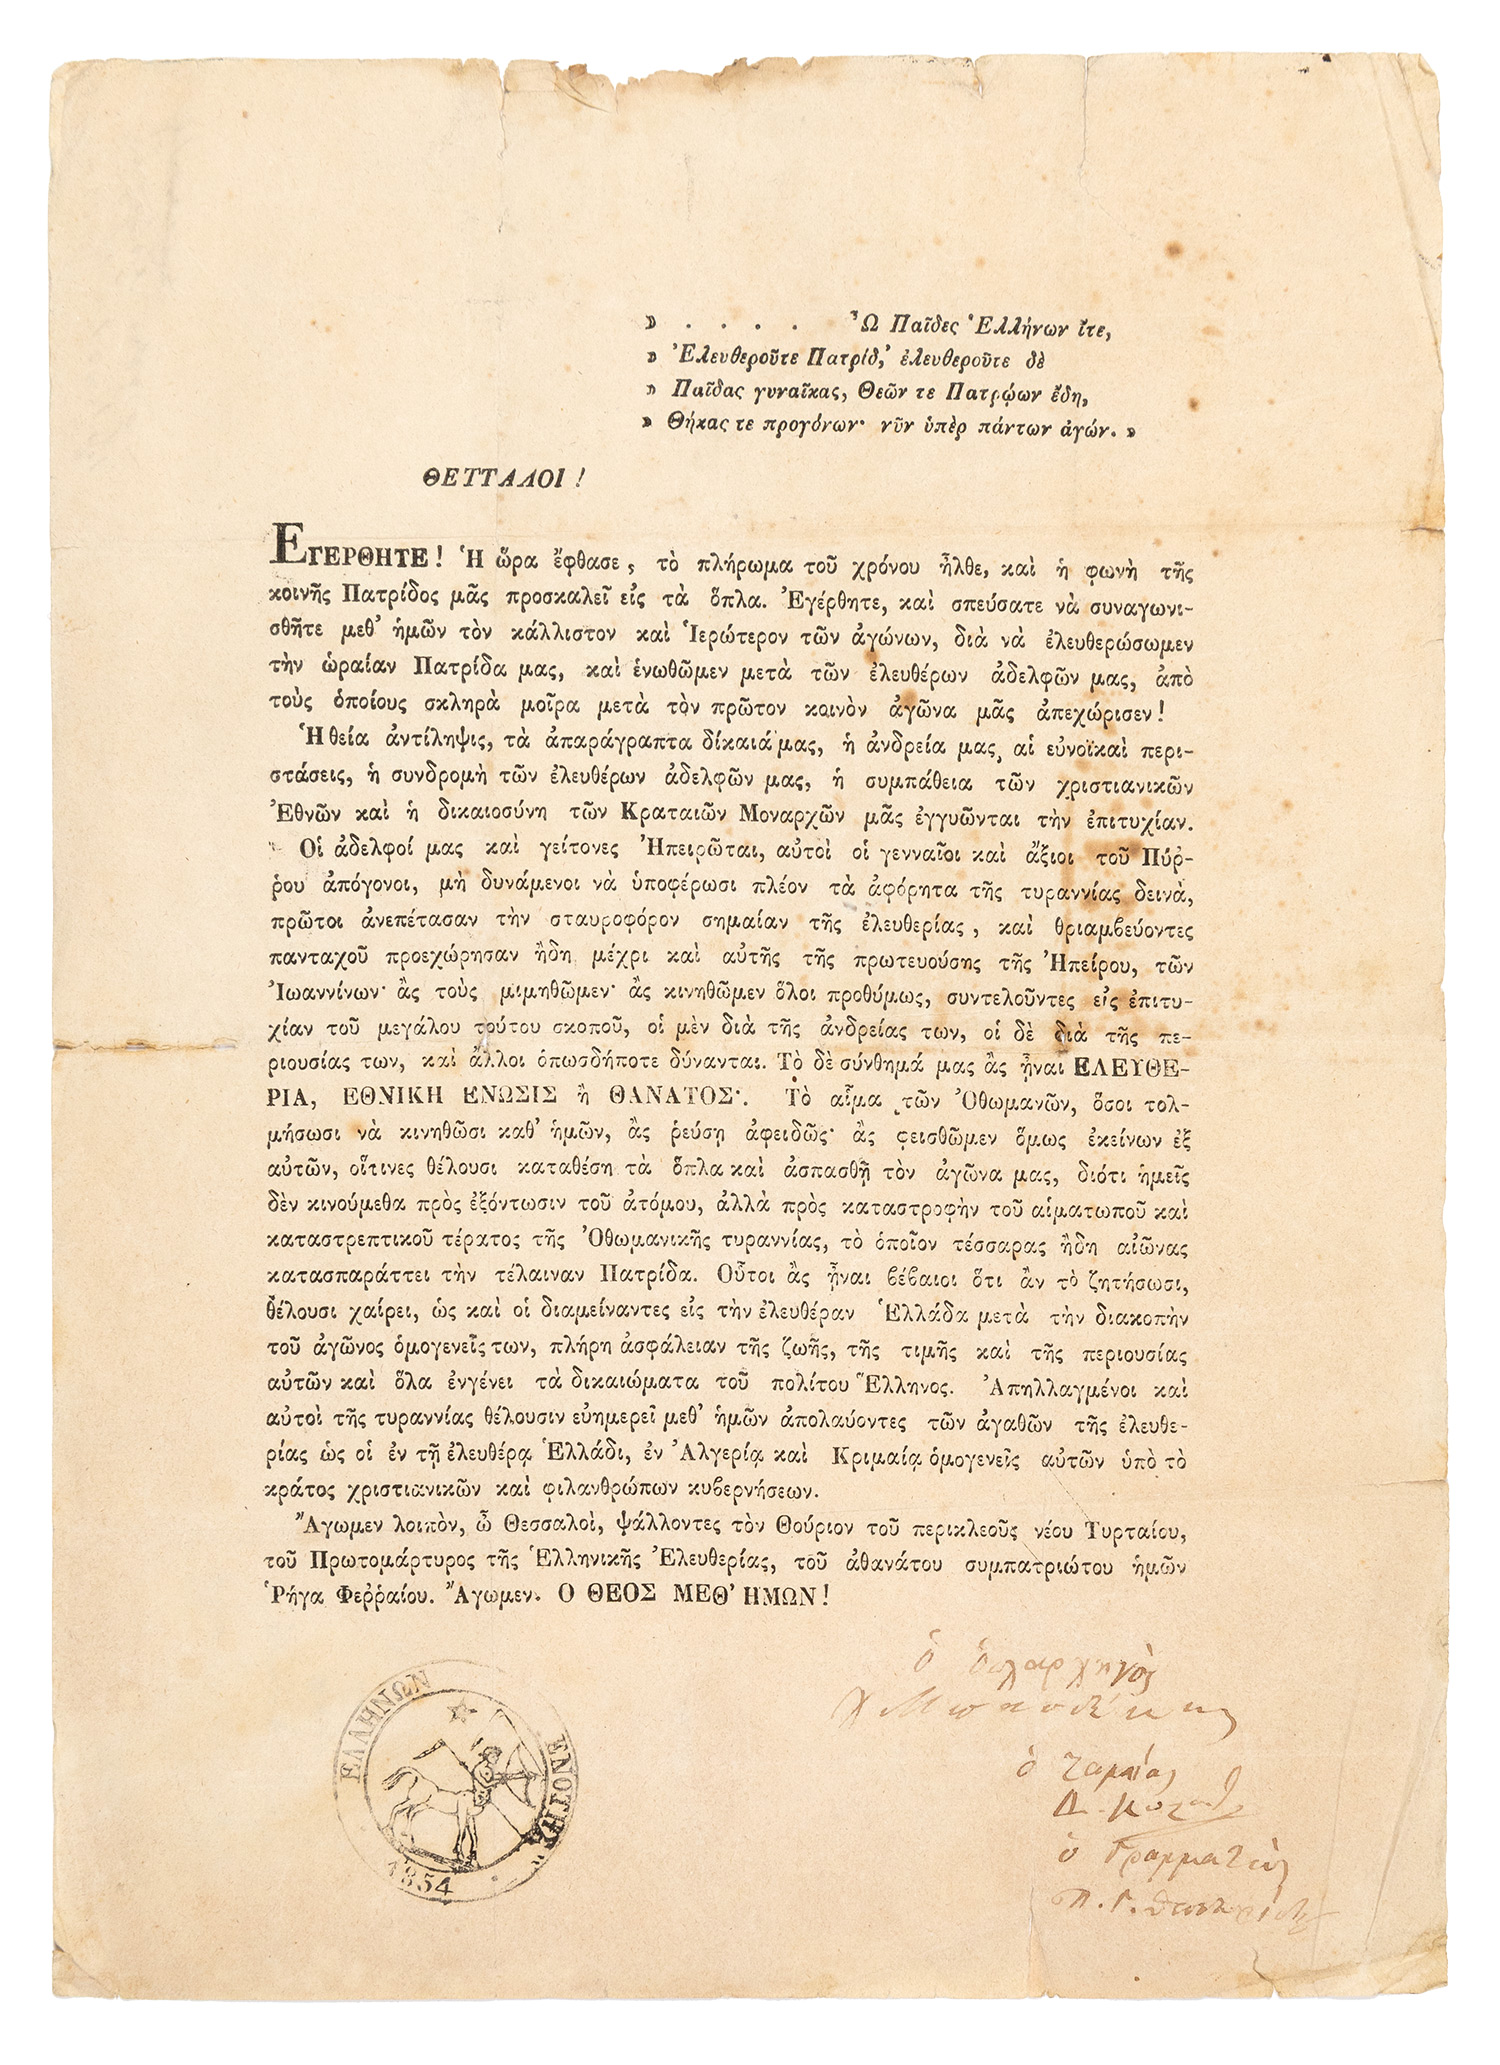 » . . . . Ὦ Παῖδες Ἑλλήνων ἴτε,
» Ἐλευθεροῦτε Πατρίδ,' ἐλευθεροῦτε δὲ
» Παῖδας γυναῖκας, Θεῶν τε Πατρῴων ἕδη,
» Θήκας τε προγόνων· νῦν ὑπὲρ πάντων ἀγών. »
ΘΕΤΤΑΛΟΙ !
ΕΓΕΡΘΗΤΕ! Ἡ ὥρα ἔφθασε, τὸ πλήρωμα τοῦ χρόνου ἦλθε, καὶ ἡ φωνὴ τῆς
κοινῆς Πατρίδος μᾶς προσκαλεῖ εἰς τὰ ὅπλα. Ἐγέρθητε, καὶ σπεύσατε νὰ συναγωνι-
σθῆτε μεθ' ἡμῶν τὸν κάλλιστον καὶ Ἱερώτερον τῶν ἀγώνων, διὰ νὰ ἐλευθερώσωμεν
τὴν ὡραίαν Πατρίδα μας, καὶ ἑνωθῶμεν μετὰ τῶν ἐλευθέρων ἀδελφῶν μας, ἀπὸ
τοὺς ὁποίους σκληρὰ μοῖρα μετὰ τὸν πρῶτον κοινὸν ἀγῶνα μᾶς ἀπεχώρισεν!
Ἡ θεία ἀντίληψις, τὰ ἀπαράγραπτα δίκαιά μας, ἡ ἀνδρεία μας, αἱ εὐνοϊκαὶ περι-
στάσεις, ἡ συνδρομὴ τῶν ἐλευθέρων ἀδελφῶν μας, ἡ συμπάθεια τῶν χριστιανικῶν
Ἐθνῶν καὶ ἡ δικαιοσύνη τῶν Κραταιῶν Μοναρχῶν μᾶς ἐγγυῶνται τὴν ἐπιτυχίαν.
Οἱ ἀδελφοί μας καὶ γείτονες Ἠπειρῶται, αὐτοὶ οἱ γενναῖοι καὶ ἄξιοι τοῦ Πύῤ-
ῥου ἀπόγονοι, μὴ δυνάμενοι νὰ ὑποφέρωσι πλέον τὰ ἀφόρητα τῆς τυραννίας δεινὰ,
πρῶτοι ἀνεπέτασαν τὴν σταυροφόρον σημαίαν τῆς ἐλευθερίας, καὶ θριαμβεύοντες
πανταχοῦ προεχώρησαν ἤδη μέχρι καὶ αὐτῆς τῆς πρωτευούσης τῆς Ἠπείρου, τῶν
Ἰωαννίνων· ἂς τοὺς μιμηθῶμεν· ἂς κινηθῶμεν ὅλοι προθύμως, συντελοῦντες εἰς ἐπιτυ-
χίαν τοῦ μεγάλου τούτου σκοποῦ, οἱ μὲν διὰ τῆς ἀνδρείας των, οἱ δὲ διὰ τῆς πε-
ριουσίας των, καὶ ἄλλοι ὁπωσδήποτε δύνανται. Τὸ δὲ σύνθημά μας ἂς ᾖναι ΕΛΕΥΘΕ-
ΡΙΑ, ΕΘΝΙΚΗ ΕΝΩΣΙΣ ἢ ΘΑΝΑΤΟΣ·. Τὸ αἷμα τῶν Ὀθωμανῶν, ὅσοι τολ-
μήσωσι νὰ κινηθῶσι καθ' ἡμῶν, ἂς ῥεύσῃ ἀφειδῶς· ἂς φεισθῶμεν ὅμως ἐκείνων ἐξ
αὐτῶν, οἵτινες θέλουσι καταθέσῃ τὰ ὅπλα καὶ ἀσπασθῆ τὸν ἀγῶνα μας, διότι ἡμεῖς
δὲν κινούμεθα πρὸς ἐξόντωσιν τοῦ ἀτόμου, ἀλλὰ πρὸς καταστροφὴν τοῦ αἱματωποῦ καὶ
καταστρεπτικοῦ τέρατος τῆς Ὀθωμανικῆς τυραννίας, τὸ ὁποῖον τέσσαρας ἤδη αἰῶνας
κατασπαράττει τὴν τέλαιναν Πατρίδα. Οὗτοι ἂς ᾖναι βέβαιοι ὅτι ἂν τὸ ζητήσωσι,
θέλουσι χαίρει, ὡς καὶ οἱ διαμείναντες εἰς τὴν ἐλευθέραν Ἑλλάδα μετὰ τὴν διακοπὴν
τοῦ ἀγῶνος ὁμογενεῖς των, πλήρη ἀσφάλειαν τῆς ζωῆς, τῆς τιμῆς καὶ τῆς περιουσίας
αὐτῶν καὶ ὅλα ἐνγένει τὰ δικαιώματα τοῦ πολίτου Ἕλληνος. Ἀπηλλαγμένοι καὶ
αὐτοὶ τῆς τυραννίας θέλουσιν εὐημερεῖ μεθ' ἡμῶν ἀπολαύοντες τῶν ἀγαθῶν τῆς ἐλευθε-
ρίας ὡς οἱ ἐν τῇ ἐλευθέρᾳ Ἑλλάδι, ἐν Ἀλγερίᾳ καὶ Κριμαίᾳ ὁμογενεῖς αὐτῶν ὑπὸ τὸ
κράτος χριστιανικῶν καὶ φιλανθρώπων κυβερνήσεων.
Ἄγωμεν λοιπὸν, ὦ Θεσσαλοὶ, ψάλλοντες τὸν Θούριον τοῦ περικλεοῦς νέου Τυρταίου,
τοῦ Πρωτομάρτυρος τῆς Ἑλληνικῆς Ἐλευθερίας, τοῦ ἀθανάτου συμπατριώτου ἡμῶν
Ῥήγα Φεῤῥαίου. Ἄγωμεν. Ο ΘΕΟΣ ΜΕΘ' ΗΜΩΝ!
ὁ ὁπλαρχηγὸς
ὁ ταμίας
ὁ Γραμματεὺς
Π. Γ.
ΕΛΛΗΝΩΝ ΕΝΟΤΗΣ
1854